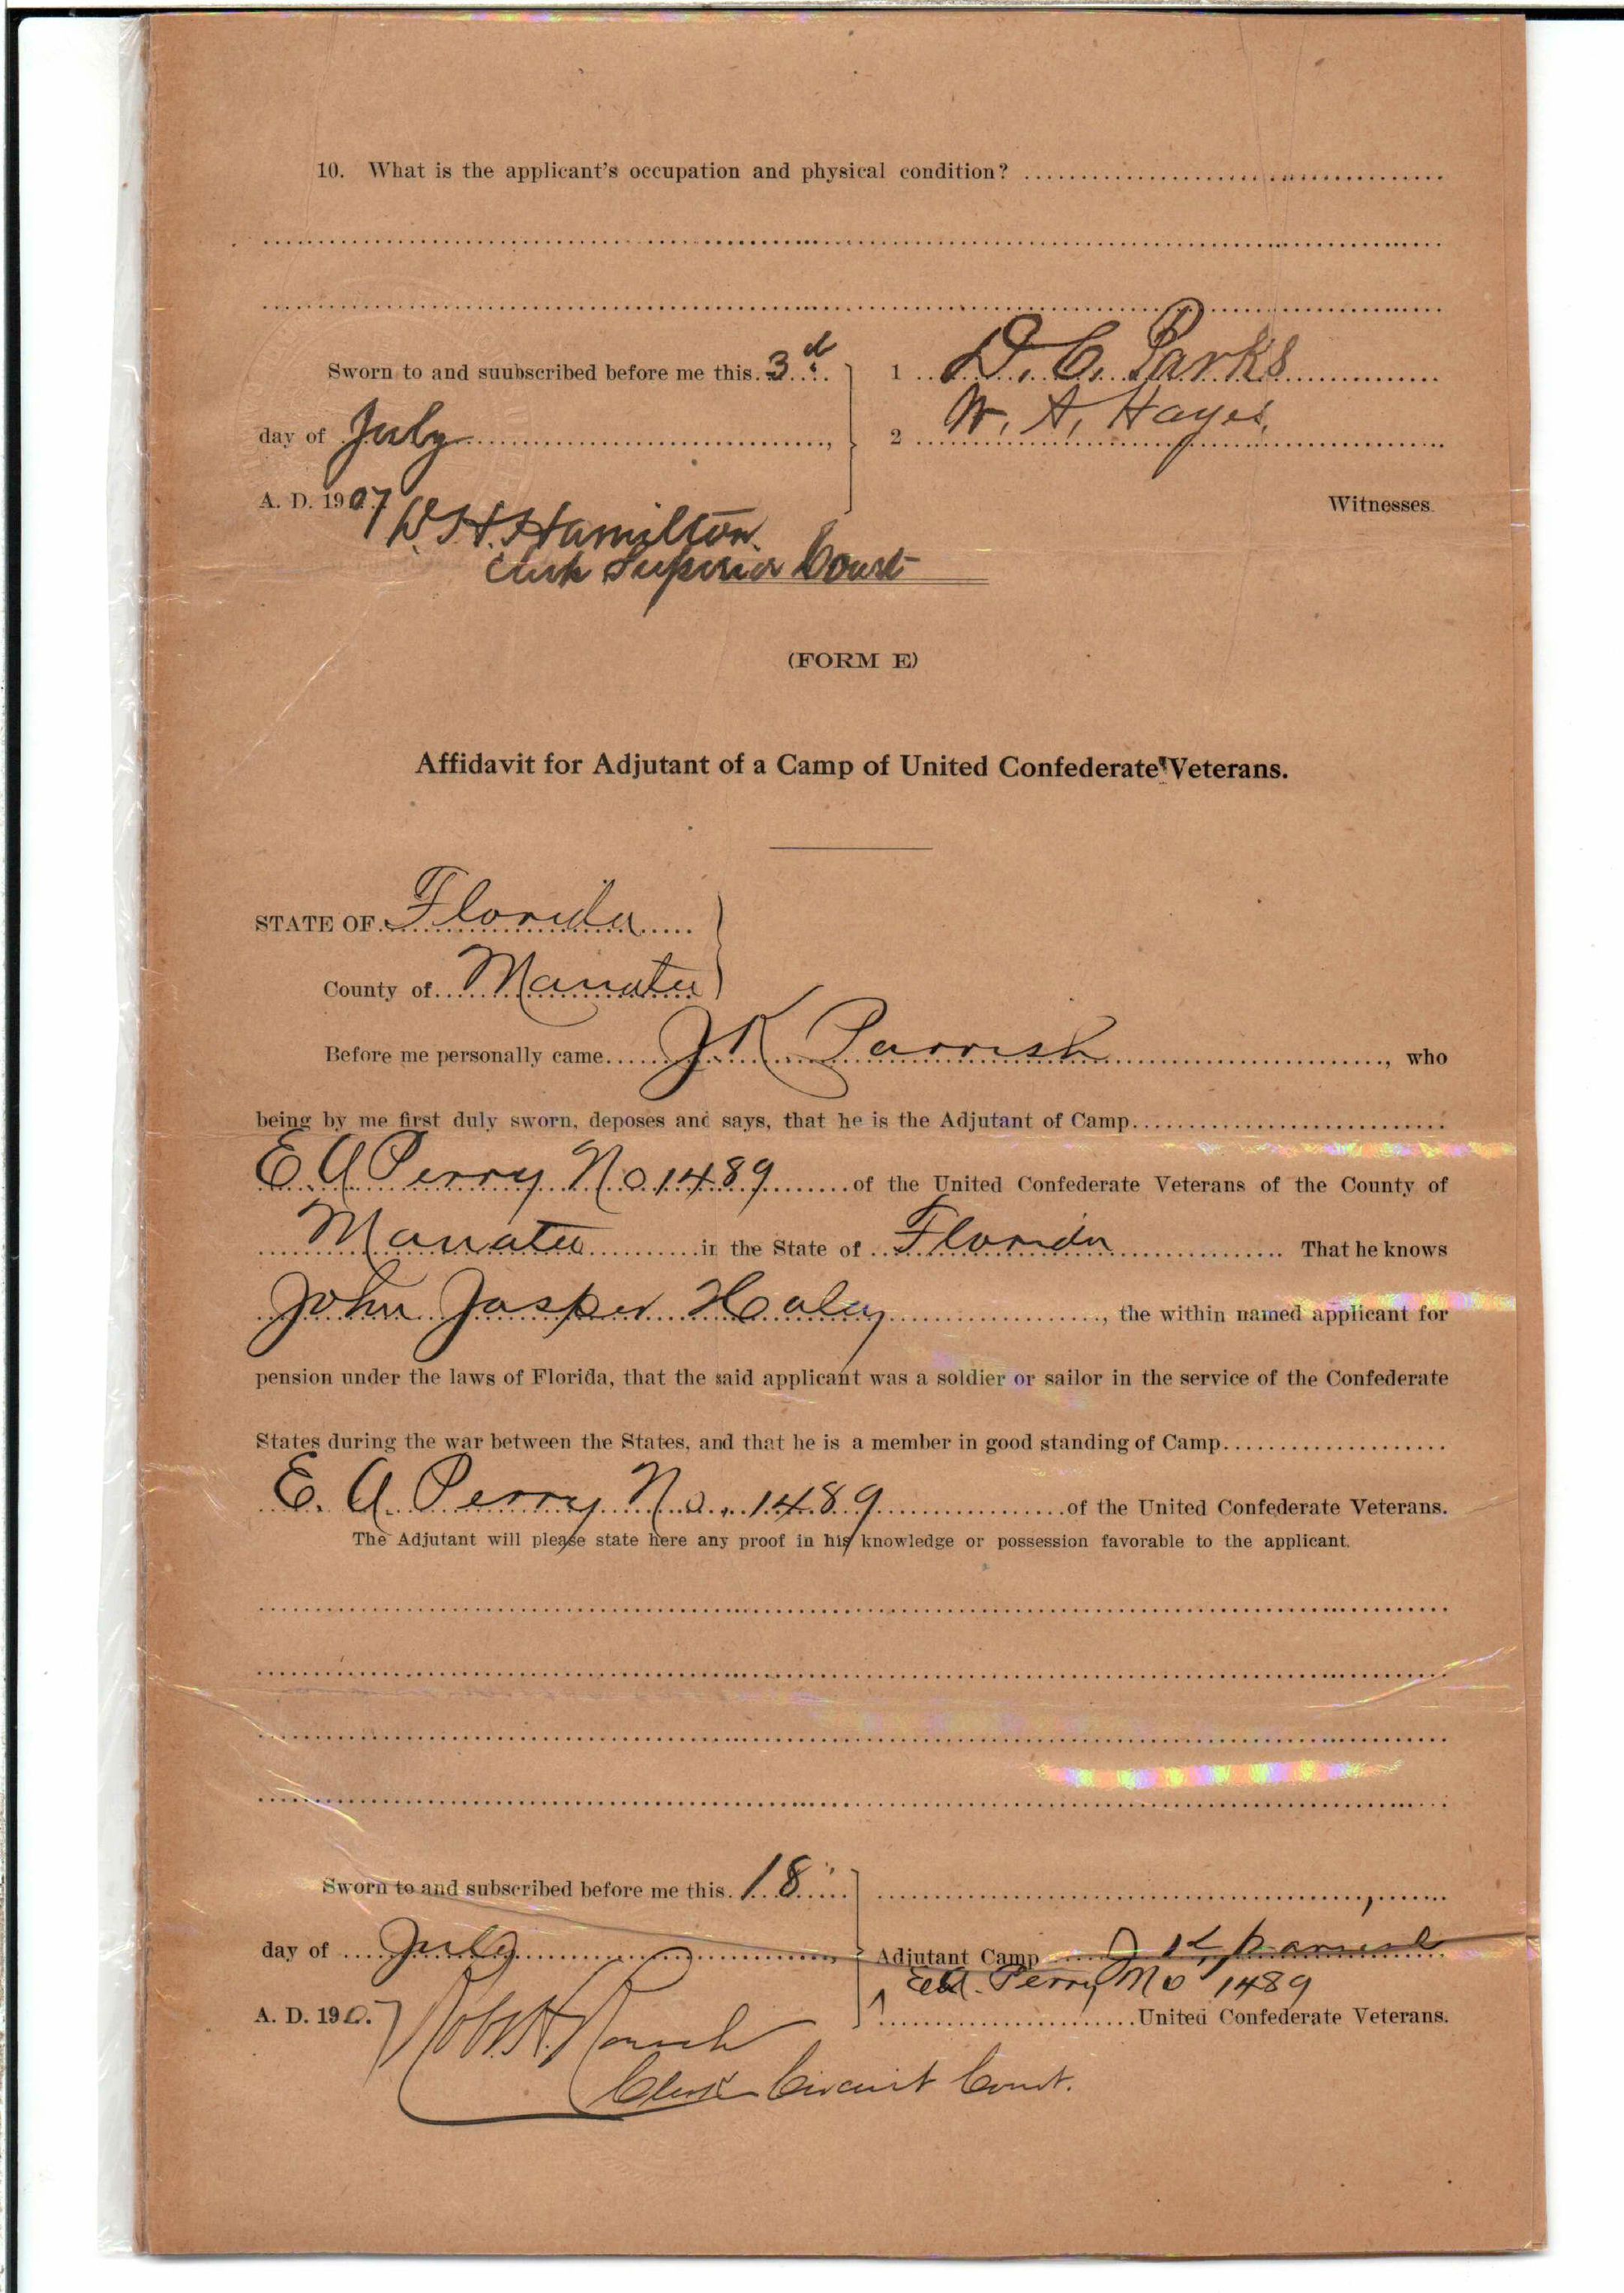 10. What is the applicant's occupation and physical condition?
Sworn to and suubscribed before me this 3d
1 D. C. Parks
day of July,
2 W. A. Hayes,
A. D. 1907
Witnesses.
W. H. Hamilton
Clerk Superior Court
(FORM E)
Affidavit for Adjutant of a Camp of United Confederate Veterans.
STATE OF Florida
County of Manatee
Before me personally came J K Parrish, who
being by me first duly sworn, deposes and says, that he is the Adjutant of Camp
E A Perry No 1489 of the United Confederate Veterans of the County of
Manatee in the State of Florida. That he knows
John Jasper Haley, the within named applicant for
pension under the laws of Florida, that the said applicant was a soldier or sailor in the service of the Confederate
States during the war between the States, and that he is a member in good standing of Camp
E. A. Perry No. 1489 of the United Confederate Veterans.
The Adjutant will please state here any proof in his knowledge or possession favorable to the applicant.
Sworn to and subscribed before me this 18
day of July,
Adjutant Camp J K Parrish
E A. Perry No 1489
A. D. 1907
United Confederate Veterans.
Robt. H.
Clerk Circuit Court.